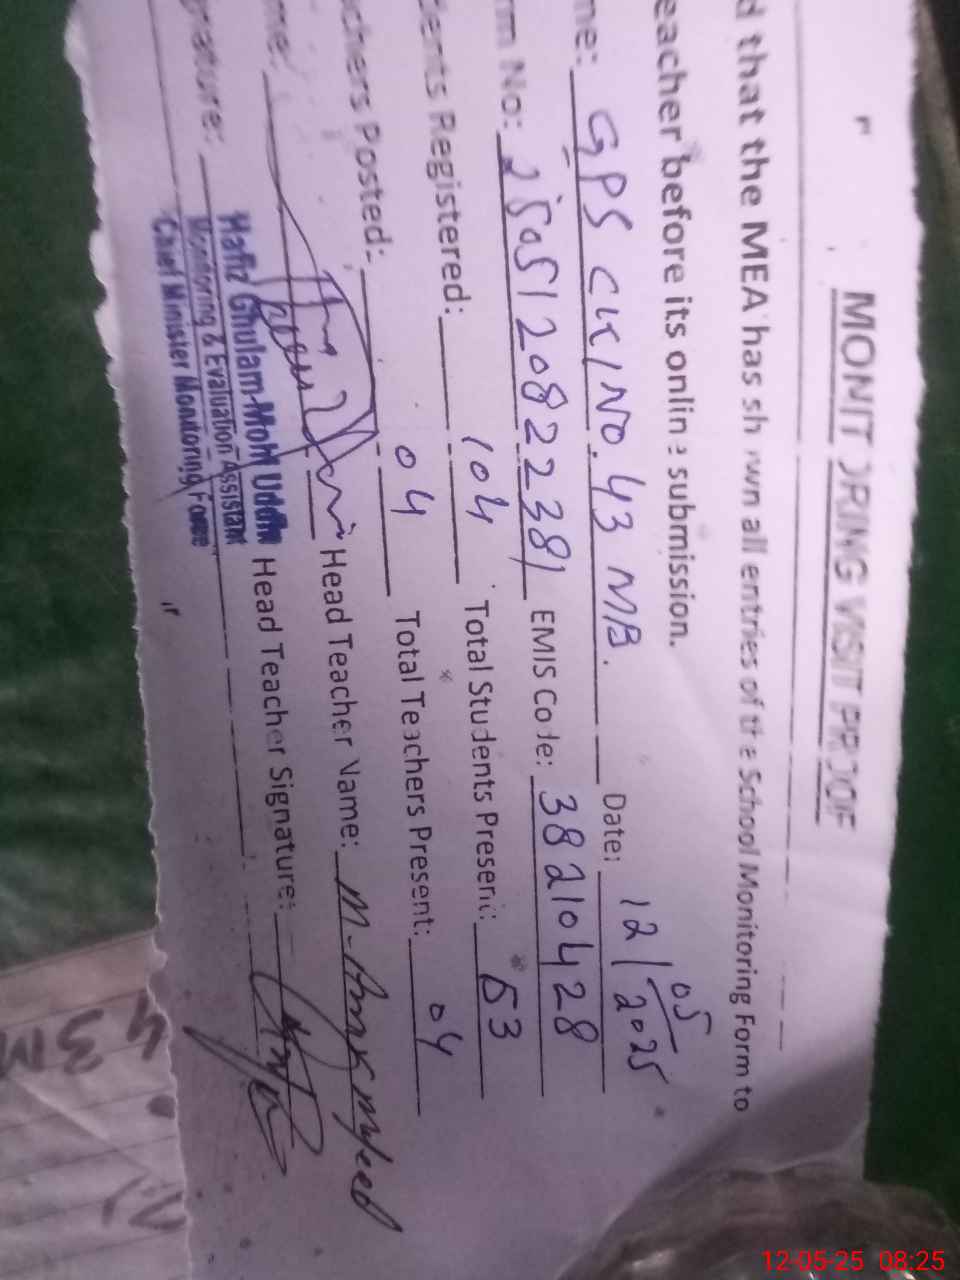 MONITORING VISIT PROOF
d that the MEA has shown all entries of the School Monitoring Form to
eacher before its online submission.
me: GPS CK/NO.43 MB. Date: 12/05/2025
rm No: 2505120822381 EMIS Code: 38210428
dents Registered: 104 Total Students Present: 53
achers Posted: 04 Total Teachers Present: 04
me: Head Teacher Name:
gnature: Head Teacher Signature:
Hafiz Ghulam-Mohi Uddin
Monitoring & Evaluation Assistant
Chief Minister Monitoring Force
43M
12-05-25 08:25